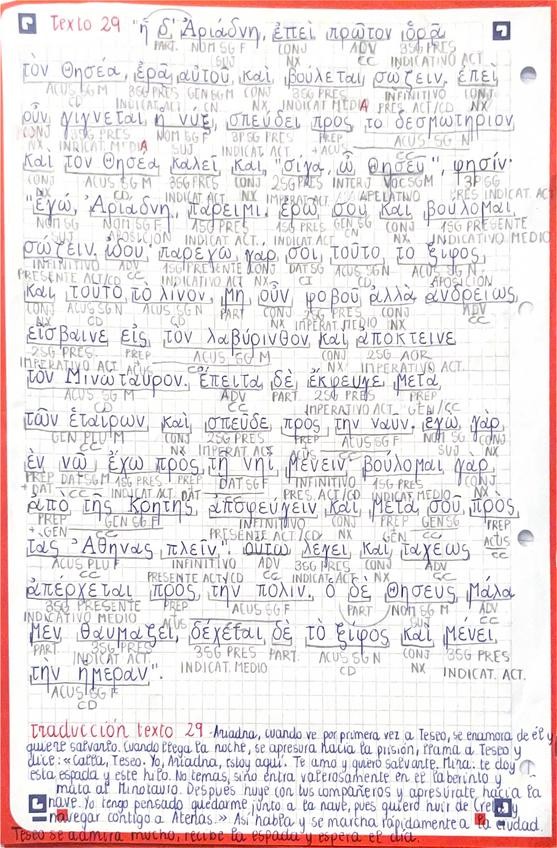 Texto 29 "ἡ δ' Ἀριάδνη, ἐπεὶ πρῶτον ὁρᾷ
PART. NOM SG F CONJ ADV 3SG PRES
SUJ NX CC INDICATIV ACT
τὸν Θησέα, ἐρᾷ αὐτοῦ καὶ βούλεται σῴζειν. ἐπεὶ
ACUS SG M 3SG PRES GEN SG M CONJ 3SG PRES INFINITIVO CONJ
CD INDICAT ACT CN NX INDICAT MEDIA PRES ACT/CD NX
οὖν γίγνεται ἡ νύξ, σπεύδει πρὸς τὸ δεσμωτήριον
CONJ 3SG PRES NOM SG F 3PSG PRES PREP ACUS SG N
NX INDICAT. MEDIA SUJ INDICAT ACT +ACUS CC
καὶ τὸν Θησέα καλεῖ καί, "σίγα, ὦ Θησεῦ", φησίν·
CONJ ACUS SG M 3SG PRES CONJ 2SG PRES INTERJ VOC SG M 3PSG
NX CD INDICAT ACT NX IMPERAT ACT APELATIVO PRES INDICAT ACT
"ἐγώ, Ἀριάδνη, πάρειμι. ἐρῶ σου καὶ βούλομαι
NOM SG NOM SG F 1SG PRES 1SG PRES GEN SG CONJ 1SG PRESENTE
SUJ APOSICIÓN INDICAT ACT. INDICAT ACT CN NX INDICATIVO MEDIO
σῴζειν. ἰδού· παρέχω γάρ σοι τοῦτο τὸ ξίφος
INFINITIVO ADV 1SG PRESENTE CONJ DAT SG ACUS SG N ACUS SG N
PRESENTE ACT/CD CC INDICATIVO ACT NX CI CD APOSICIÓN
καὶ τοῦτο τὸ λίνον. μὴ οὖν φοβοῦ ἀλλὰ ἀνδρείως
CONJ ACUS SG N ACUS SG N PART CONJ 2SG PRES CONJ ADV
NX CD CD NX IMPERAT. MEDIO NX CC
εἴσβαινε εἰς τὸν λαβύρινθον καὶ ἀπόκτεινε
2SG PRES. PREP ACUS SG M CONJ 2SG AOR
IMPERATIVO ACT +ACUS CC NX IMPERATIVO ACT.
τὸν Μινώταυρον. ἔπειτα δὲ ἔκφευγε μετὰ
ACUS SG M ADV PART. 2SG PRES PREP
CD CC IMPERATIVO ACT GEN/CC
τῶν ἑταίρων καὶ σπεῦδε πρὸς τὴν ναῦν. ἐγὼ γὰρ
GEN PLU M CONJ 2SG PRES PREP ACUS SG F NOM SG CONJ
CC NX IMPERAT ACT ACUS CC SUJ NX
ἐν νῷ ἔχω πρὸς τῇ νηὶ μένειν· βούλομαι γὰρ
PREP DAT SG M 1SG PRES PREP DAT SG F INFINITIVO 1SG PRES CONJ
+ DAT CC INDICAT ACT DAT CC PRES. ACT/CD INDICAT MEDIO NX
ἀπὸ τῆς Κρήτης ἀποφεύγειν καὶ μετὰ σοῦ πρὸς
PREP GEN SG F INFINITIVO CONJ PREP GEN SG PREP
+ GEN CC PRESENTE ACT/CD NX GEN CC ACUS
τὰς Ἀθήνας πλεῖν". οὕτω λέγει καὶ ταχέως
ACUS PLU F INFINITIVO ADV 3SG PRES CONJ ADV
CC PRESENTE ACT/CD CC INDICAT ACT NX CC
ἀπέρχεται πρὸς τὴν πόλιν. ὁ δὲ Θησεὺς μάλα
3SG PRESENTE PREP ACUS SG F PART NOM SG M ADV
INDICATIVO MEDIO ACUS CC SUJ CC
μὲν θαυμάζει, δέχεται δὲ τὸ ξίφος καὶ μένει
PART. 3SG PRES 3SG PRES PART. ACUS SG N CONJ 3SG PRES
INDICAT ACT. INDICAT. MEDIO CD NX INDICAT. ACT.
τὴν ἡμέραν".
ACUS SG F
CD
traducción texto 29 -Ariadna, cuando ve por primera vez a Teseo, se enamora de él y
quiere salvarlo. Cuando llega la noche, se apresura hacia la prisión, llama a Teseo y
dice: «Calla, Teseo. Yo, Ariadna, estoy aquí. Te amo y quiero salvarte. Mira: te doy
esta espada y este hilo. No temas, sino entra valerosamente en el laberinto y
mata al Minotauro. Después huye con tus compañeros y apresúrate hacia la
nave. Yo tengo pensado quedarme junto a la nave, pues quiero huir de Creta y
navegar contigo a Atenas.» Así habla y se marcha rápidamente a la ciudad.
Teseo se admira mucho, recibe la espada y espera el día.